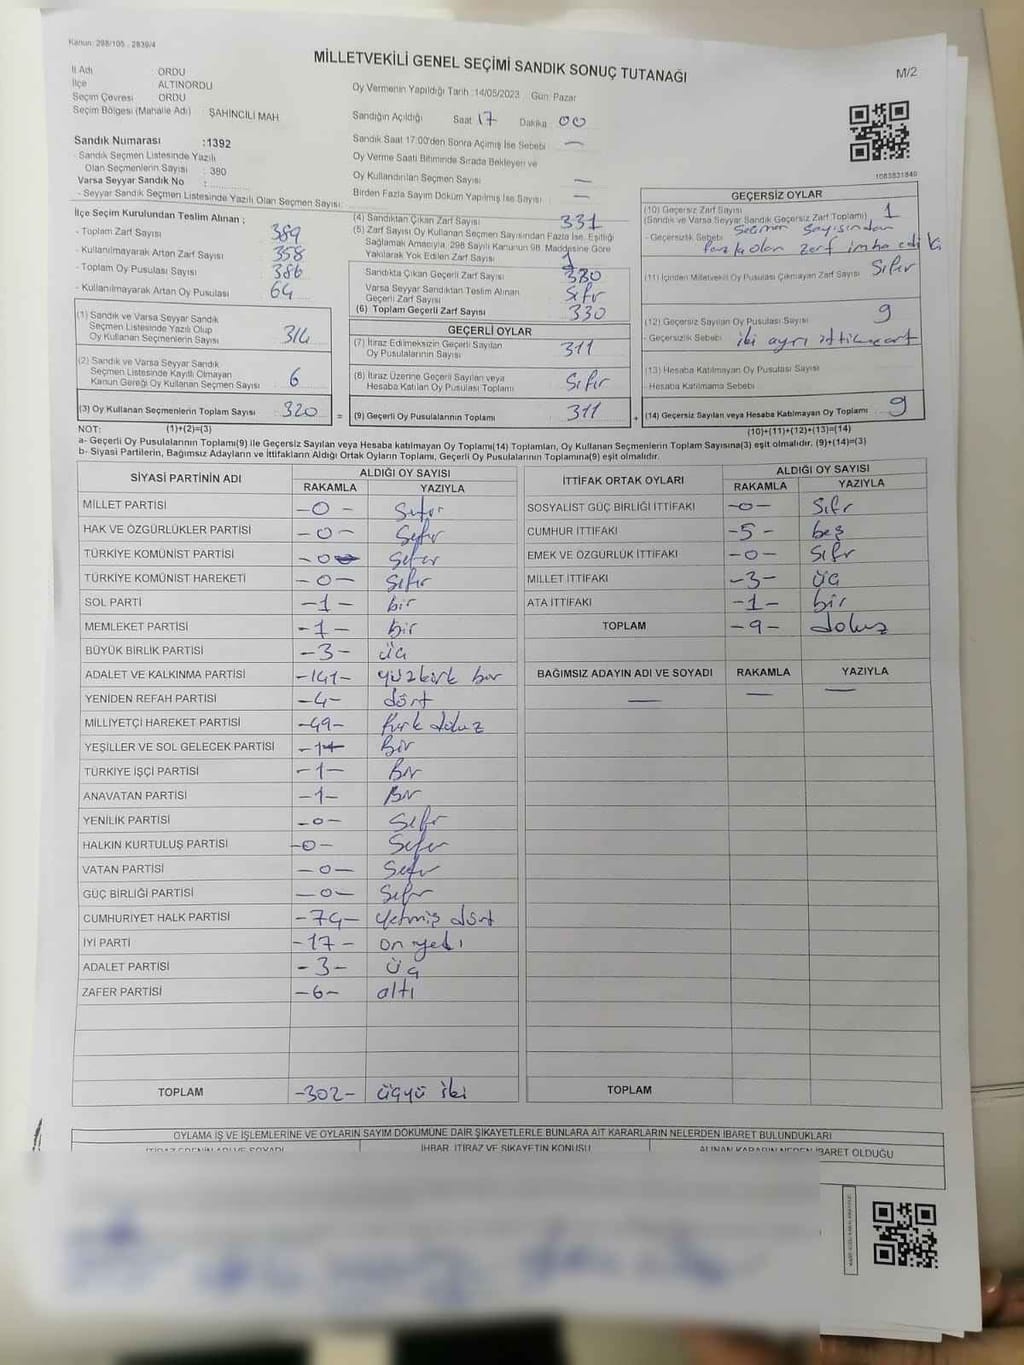 Kanun: 298/105 - 2839/4
MİLLETVEKİLİ GENEL SEÇİMİ SANDIK SONUÇ TUTANAĞI
M/2
İl Adı ORDU
İlçe ALTINORDU
Seçim Çevresi ORDU
Seçim Bölgesi (Mahalle Adı) ŞAHİNCİLİ MAH
Oy Vermenin Yapıldığı Tarih :14/05/2023 Gün: Pazar
Sandığın Açıldığı Saat 17 Dakika 00
Sandık Numarası :1392
- Sandık Seçmen Listesinde Yazılı
Olan Seçmenlerin Sayısı : 380
Varsa Seyyar Sandık No :
- Seyyar Sandık Seçmen Listesinde Yazılı Olan Seçmen Sayısı:
Sandık Saat 17:00'den Sonra Açılmış İse Sebebi —
Oy Verme Saati Bitiminde Sırada Bekleyen ve
Oy Kullandırılan Seçmen Sayısı —
Birden Fazla Sayım Döküm Yapılmış İse Sayısı —
1083831840
İlçe Seçim Kurulundan Teslim Alınan ;
- Toplam Zarf Sayısı 389
- Kullanılmayarak Artan Zarf Sayısı 358
- Toplam Oy Pusulası Sayısı 386
- Kullanılmayarak Artan Oy Pusulası 64
(1) Sandık ve Varsa Seyyar Sandık
Seçmen Listesinde Yazılı Olup
Oy Kullanan Seçmenlerin Sayısı 314
(2) Sandık ve Varsa Seyyar Sandık
Seçmen Listesinde Kayıtlı Olmayan
Kanun Gereği Oy Kullanan Seçmen Sayısı 6
(3) Oy Kullanan Seçmenlerin Toplam Sayısı 320 =
(4) Sandıktan Çıkan Zarf Sayısı 331
(5) Zarf Sayısı Oy Kullanan Seçmen Sayısından Fazla İse, Eşitliği
Sağlamak Amacıyla, 298 Sayılı Kanunun 98. Maddesine Göre
Yakılarak Yok Edilen Zarf Sayısı 1
Sandıkta Çıkan Geçerli Zarf Sayısı 330
Varsa Seyyar Sandıktan Teslim Alınan
Geçerli Zarf Sayısı Sıfır
(6) Toplam Geçerli Zarf Sayısı 330
GEÇERLİ OYLAR
(7) İtiraz Edilmeksizin Geçerli Sayılan
Oy Pusulalarının Sayısı 311
(8) İtiraz Üzerine Geçerli Sayılan veya
Hesaba Katılan Oy Pusulası Toplamı Sıfır
(9) Geçerli Oy Pusulalarının Toplamı 311 +
GEÇERSİZ OYLAR
(10) Geçersiz Zarf Sayısı
(Sandık ve Varsa Seyyar Sandık Geçersiz Zarf Toplamı) 1
- Geçersizlik Sebebi Seçmen sayısından
fazla olan zarf imha edildi
(11) İçinden Milletvekili Oy Pusulası Çıkmayan Zarf Sayısı Sıfır
(12) Geçersiz Sayılan Oy Pusulası Sayısı 9
- Geçersizlik Sebebi iki ayrı
(13) Hesaba Katılmayan Oy Pusulası Sayısı
Hesaba Katılmama Sebebi
(14) Geçersiz Sayılan veya Hesaba Katılmayan Oy Toplamı 9
NOT: (1)+(2)=(3) (10)+(11)+(12)+(13)=(14)
a- Geçerli Oy Pusulalarının Toplamı(9) ile Geçersiz Sayılan veya Hesaba katılmayan Oy Toplamı(14) Toplamları, Oy Kullanan Seçmenlerin Toplam Sayısına(3) eşit olmalıdır. (9)+(14)=(3)
b- Siyasi Partilerin, Bağımsız Adayların ve İttifakların Aldığı Ortak Oyların Toplamı, Geçerli Oy Pusulalarının Toplamına(9) eşit olmalıdır.
SİYASİ PARTİNİN ADI ALDIĞI OY SAYISI
RAKAMLA YAZIYLA
MİLLET PARTİSİ -0- Sıfır
HAK VE ÖZGÜRLÜKLER PARTİSİ -0- Sıfır
TÜRKİYE KOMÜNİST PARTİSİ -0- Sıfır
TÜRKİYE KOMÜNİST HAREKETİ -0- Sıfır
SOL PARTİ -1- bir
MEMLEKET PARTİSİ -1- bir
BÜYÜK BİRLİK PARTİSİ -3- üç
ADALET VE KALKINMA PARTİSİ -141- yüzkırk bir
YENİDEN REFAH PARTİSİ -4- dört
MİLLİYETÇİ HAREKET PARTİSİ -49- Kırk dokuz
YEŞİLLER VE SOL GELECEK PARTİSİ -1- Bir
TÜRKİYE İŞÇİ PARTİSİ -1- Bir
ANAVATAN PARTİSİ -1- Bir
YENİLİK PARTİSİ -0- Sıfır
HALKIN KURTULUŞ PARTİSİ -0- Sıfır
VATAN PARTİSİ -0- Sıfır
GÜÇ BİRLİĞİ PARTİSİ -0- Sıfır
CUMHURİYET HALK PARTİSİ -74- Yetmiş dört
İYİ PARTİ -17- on yedi
ADALET PARTİSİ -3- üç
ZAFER PARTİSİ -6- altı
TOPLAM -302- üçyü iki
İTTİFAK ORTAK OYLARI ALDIĞI OY SAYISI
RAKAMLA YAZIYLA
SOSYALİST GÜÇ BİRLİĞİ İTTİFAKI -0- Sıfır
CUMHUR İTTİFAKI -5- beş
EMEK VE ÖZGÜRLÜK İTTİFAKI -0- Sıfır
MİLLET İTTİFAKI -3- üç
ATA İTTİFAKI -1- bir
TOPLAM -9- dokuz
BAĞIMSIZ ADAYIN ADI VE SOYADI RAKAMLA YAZIYLA
— — —
TOPLAM
OYLAMA İŞ VE İŞLEMLERİNE VE OYLARIN SAYIM DÖKÜMÜNE DAİR ŞİKAYETLERLE BUNLARA AİT KARARLARIN NELERDEN İBARET BULUNDUKLARI
İHBAR, İTİRAZ VE ŞİKAYETİN KONUSU
ALINAN KARARIN NEDEN İBARET OLDUĞU